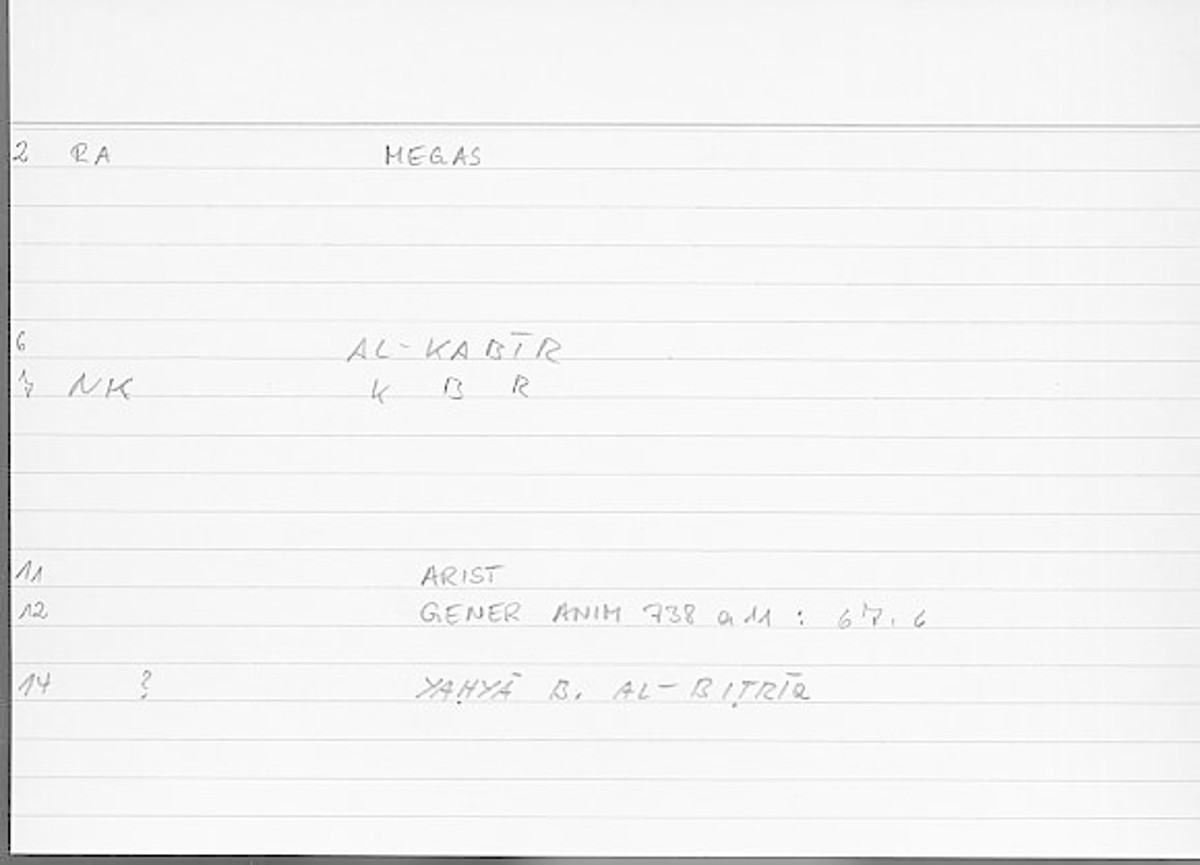 2 RA MEGAS
6 AL-KABĪR
7 NK K B R
11 ARIST
12 GENER ANIM 738 a 11 : 67.6
14 ? YAḤYĀ B. AL-BIṬRĪQ